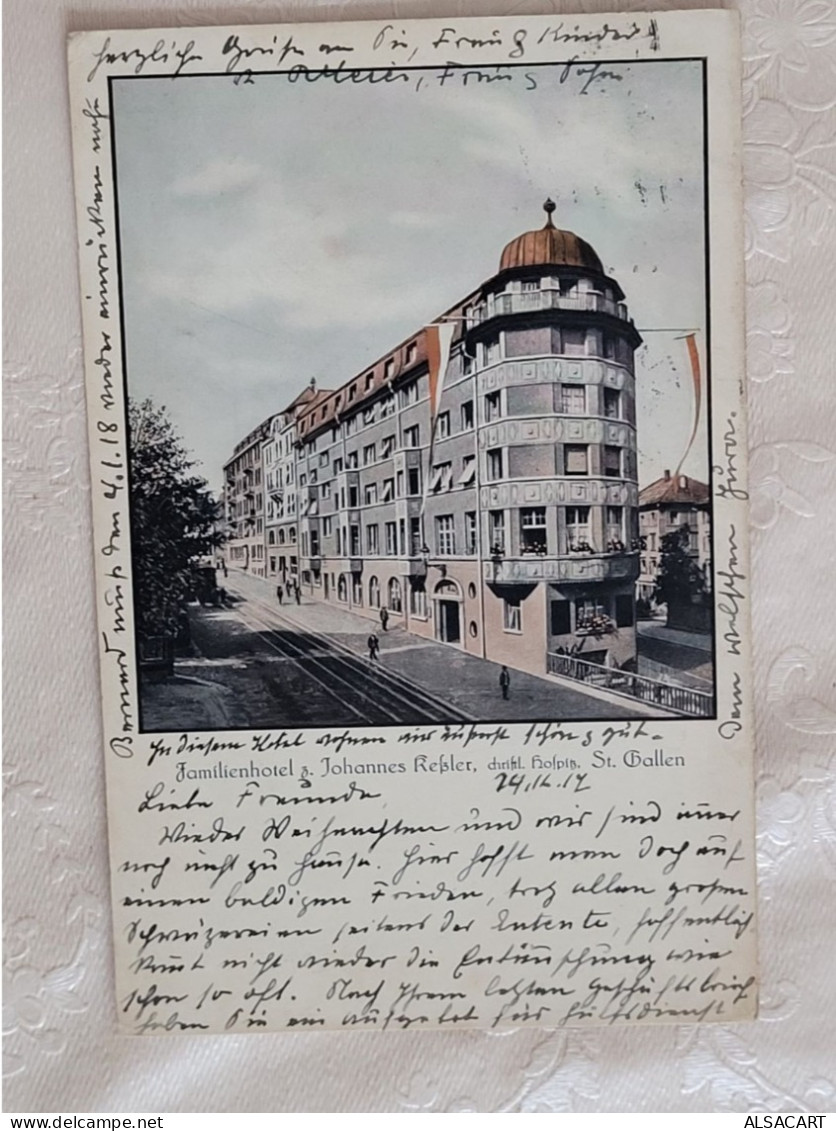 herzliche Grüße an Sie, Frau & Kinder
Meier, Frau & Sohn
Bernard muß den 4.1.18 wieder einrücken nach
dem welschen Jura.
In diesem Hotel wohnen wir äußerst schön & gut.
Familienhotel z. Johannes Keßler, christl. Hospiz, St. Gallen
24.12.17
Liebe Freunde
Wieder Weihnachten und wir sind immer
noch nicht zu Hause. Hier hofft man doch auf
einen baldigen Frieden, trotz allen großen
seitens der Entente, hoffentlich
kommt nicht wieder die Enttäuschung wie
schon so oft. Nach Ihrem letzten Geschäftsbrief
haben Sie ein Aufgebot für Hülfsdienst
ALSACART